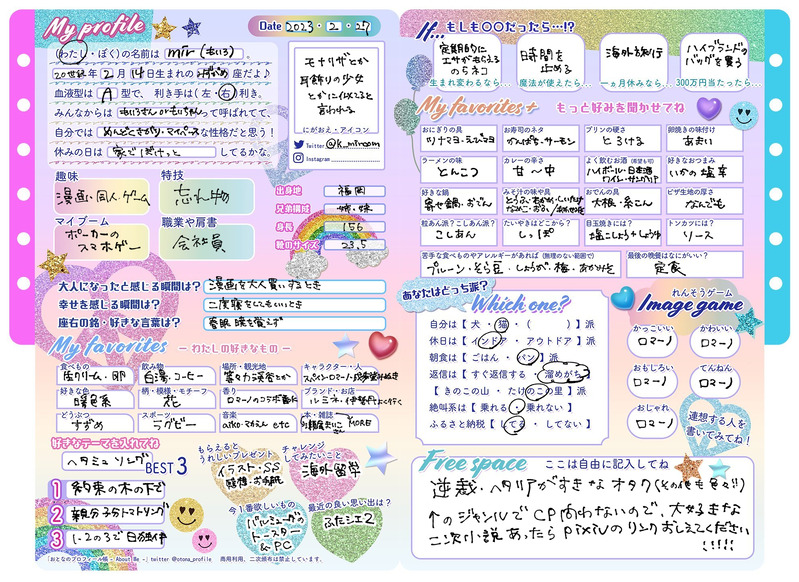 My profile
Date 2023・2・27
わたし・ぼくの名前は mir(もいろ)。
20世紀年2月14日生まれのみずがめ座だよ♪
血液型は A 型で、利き手は(左・右)利き。
みんなからは もいろさん or もいちゃん って呼ばれてて、
自分では めんどくさがり・マイペース な性格だと思う!
休みの日は 家でぼけっと してるかな。
モナリザとか
耳飾りの少女
とかに似てると
言われる
にがおえ・アイコン
Twitter @k_mircom
Instagram
趣味
漫画・同人・ゲーム
特技
忘れ物
マイブーム
ポーカーの
スマホゲー
職業や肩書
会社員
出身地 福岡
兄弟構成 姉・妹
身長 156
靴のサイズ 23.5
大人になったと感じる瞬間は? 漫画を大人買いするとき
幸せを感じる瞬間は? 二度寝をしてもいいとき
座右の銘・好きな言葉は? 春眠暁を覚えず
My favorites ーわたしの好きなものー
食べもの
生クリーム・卵
飲み物
白湯・コーヒー
場所・観光地
キャラクター・人
好きな色
暖色系
柄・模様・モチーフ
花
香り
ロマーノのコラボ香水
ブランド・お店
ルミネ・伊勢丹よく行く
どうぶつ
すずめ
スポーツ
ラグビー
音楽
aiko・マカえん etc
本・雑誌
MORE
好きなテーマを入れてね
ヘタミュソング BEST3
1 約束の木の下で
2 親分子分トマトリング
3 1・2の3で日独伊
もらえると
うれしいプレゼント
イラスト・SS
感想・お手紙
チャレンジ
してみたいこと
海外留学
今1番欲しいもの
バルミューダの
トースター
&PC
最近の良い思い出は?
ふたシエ2
「おとなのプロフィール帳 - About Me -」twitter @otona_profile 商用利用、二次頒布は禁止しています。
If... もしも〇〇だったら…!?
定期的に
エサがもらえる
のらネコ
生まれ変わるなら…
時間を
止める
魔法が使えたら…
海外旅行
一ヵ月休みなら…
ハイブランドの
バッグを買う
300万円当たったら…
My favorites+ もっと好みを聞かせてね
おにぎりの具
ツナマヨ・エビマヨ
お寿司のネタ
かんぱち・サーモン
プリンの硬さ
とろける
卵焼きの味付け
あまい
ラーメンの味
とんこつ
カレーの辛さ
甘〜中
よく飲むお酒(希望も可)
ハイボール・日本酒
ワイン・サングリア
好きなおつまみ
いかの塩辛
好きな鍋
寄せ鍋・おでん
みそ汁の味や具
おでんの具
大根・糸こん
ピザ生地の厚さ
なんでも
粒あん派?こしあん派?
こしあん
たいやきはどこから?
しっぽ
目玉焼きには?
塩こしょう+しょうゆ
トンカツには?
ソース
苦手な食べものやアレルギーがあれば(無理のない範囲で)
プルーン・そら豆・しょうが・梅・あかだし
最後の晩餐はなにがいい?
定食
あなたはどっち派?
Which one?
自分は【 犬・猫・( )】派
休日は【インドア・アウトドア】派
朝食は【ごはん・パン】派
返信は【すぐ返信する・溜めがち】
【きのこの山・たけのこの里】派
絶叫系は【乗れる・乗れない】
ふるさと納税【してる・してない】
れんそうゲーム
Image game
かっこいい
ロマーノ
かわいい
ロマーノ
おもしろい
ロマーノ
てんねん
ロマーノ
おしゃれ
ロマーノ
連想する人を
書いてみてね!
Free space ここは自由に記入してね
逆裁・ヘタリアがすきなオタク(その他も色々!)
↑のジャンルでCP問わないので、大好きな
二次小説あったらpixivのリンクおしえてください
!!!!!